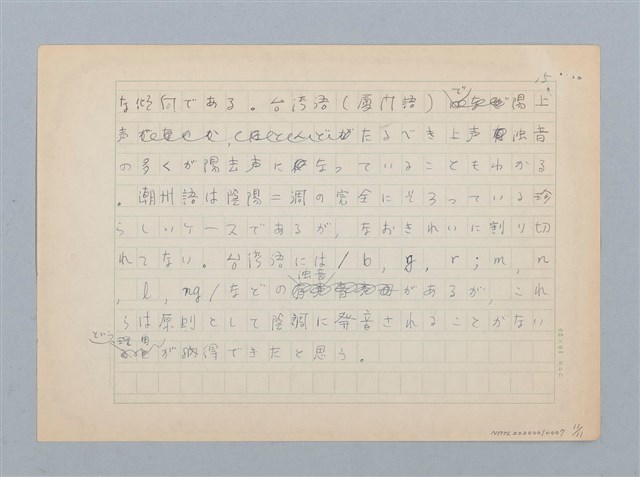 15
な傾向である。台湾語(厦門語)で陽上
声たるべき上声濁音
の多くが陽去声になっていることもわかる
。潮州語は陰陽二調の完全にそろっている珍
らしいケースであるが、なおきれいに割り切
れてない。台湾語には/b, g, r; m, n
, l, ng/などの濁音があるが、これ
らは原則として陰調に発音されることがない
という理由が納得できたと思う。
11/11